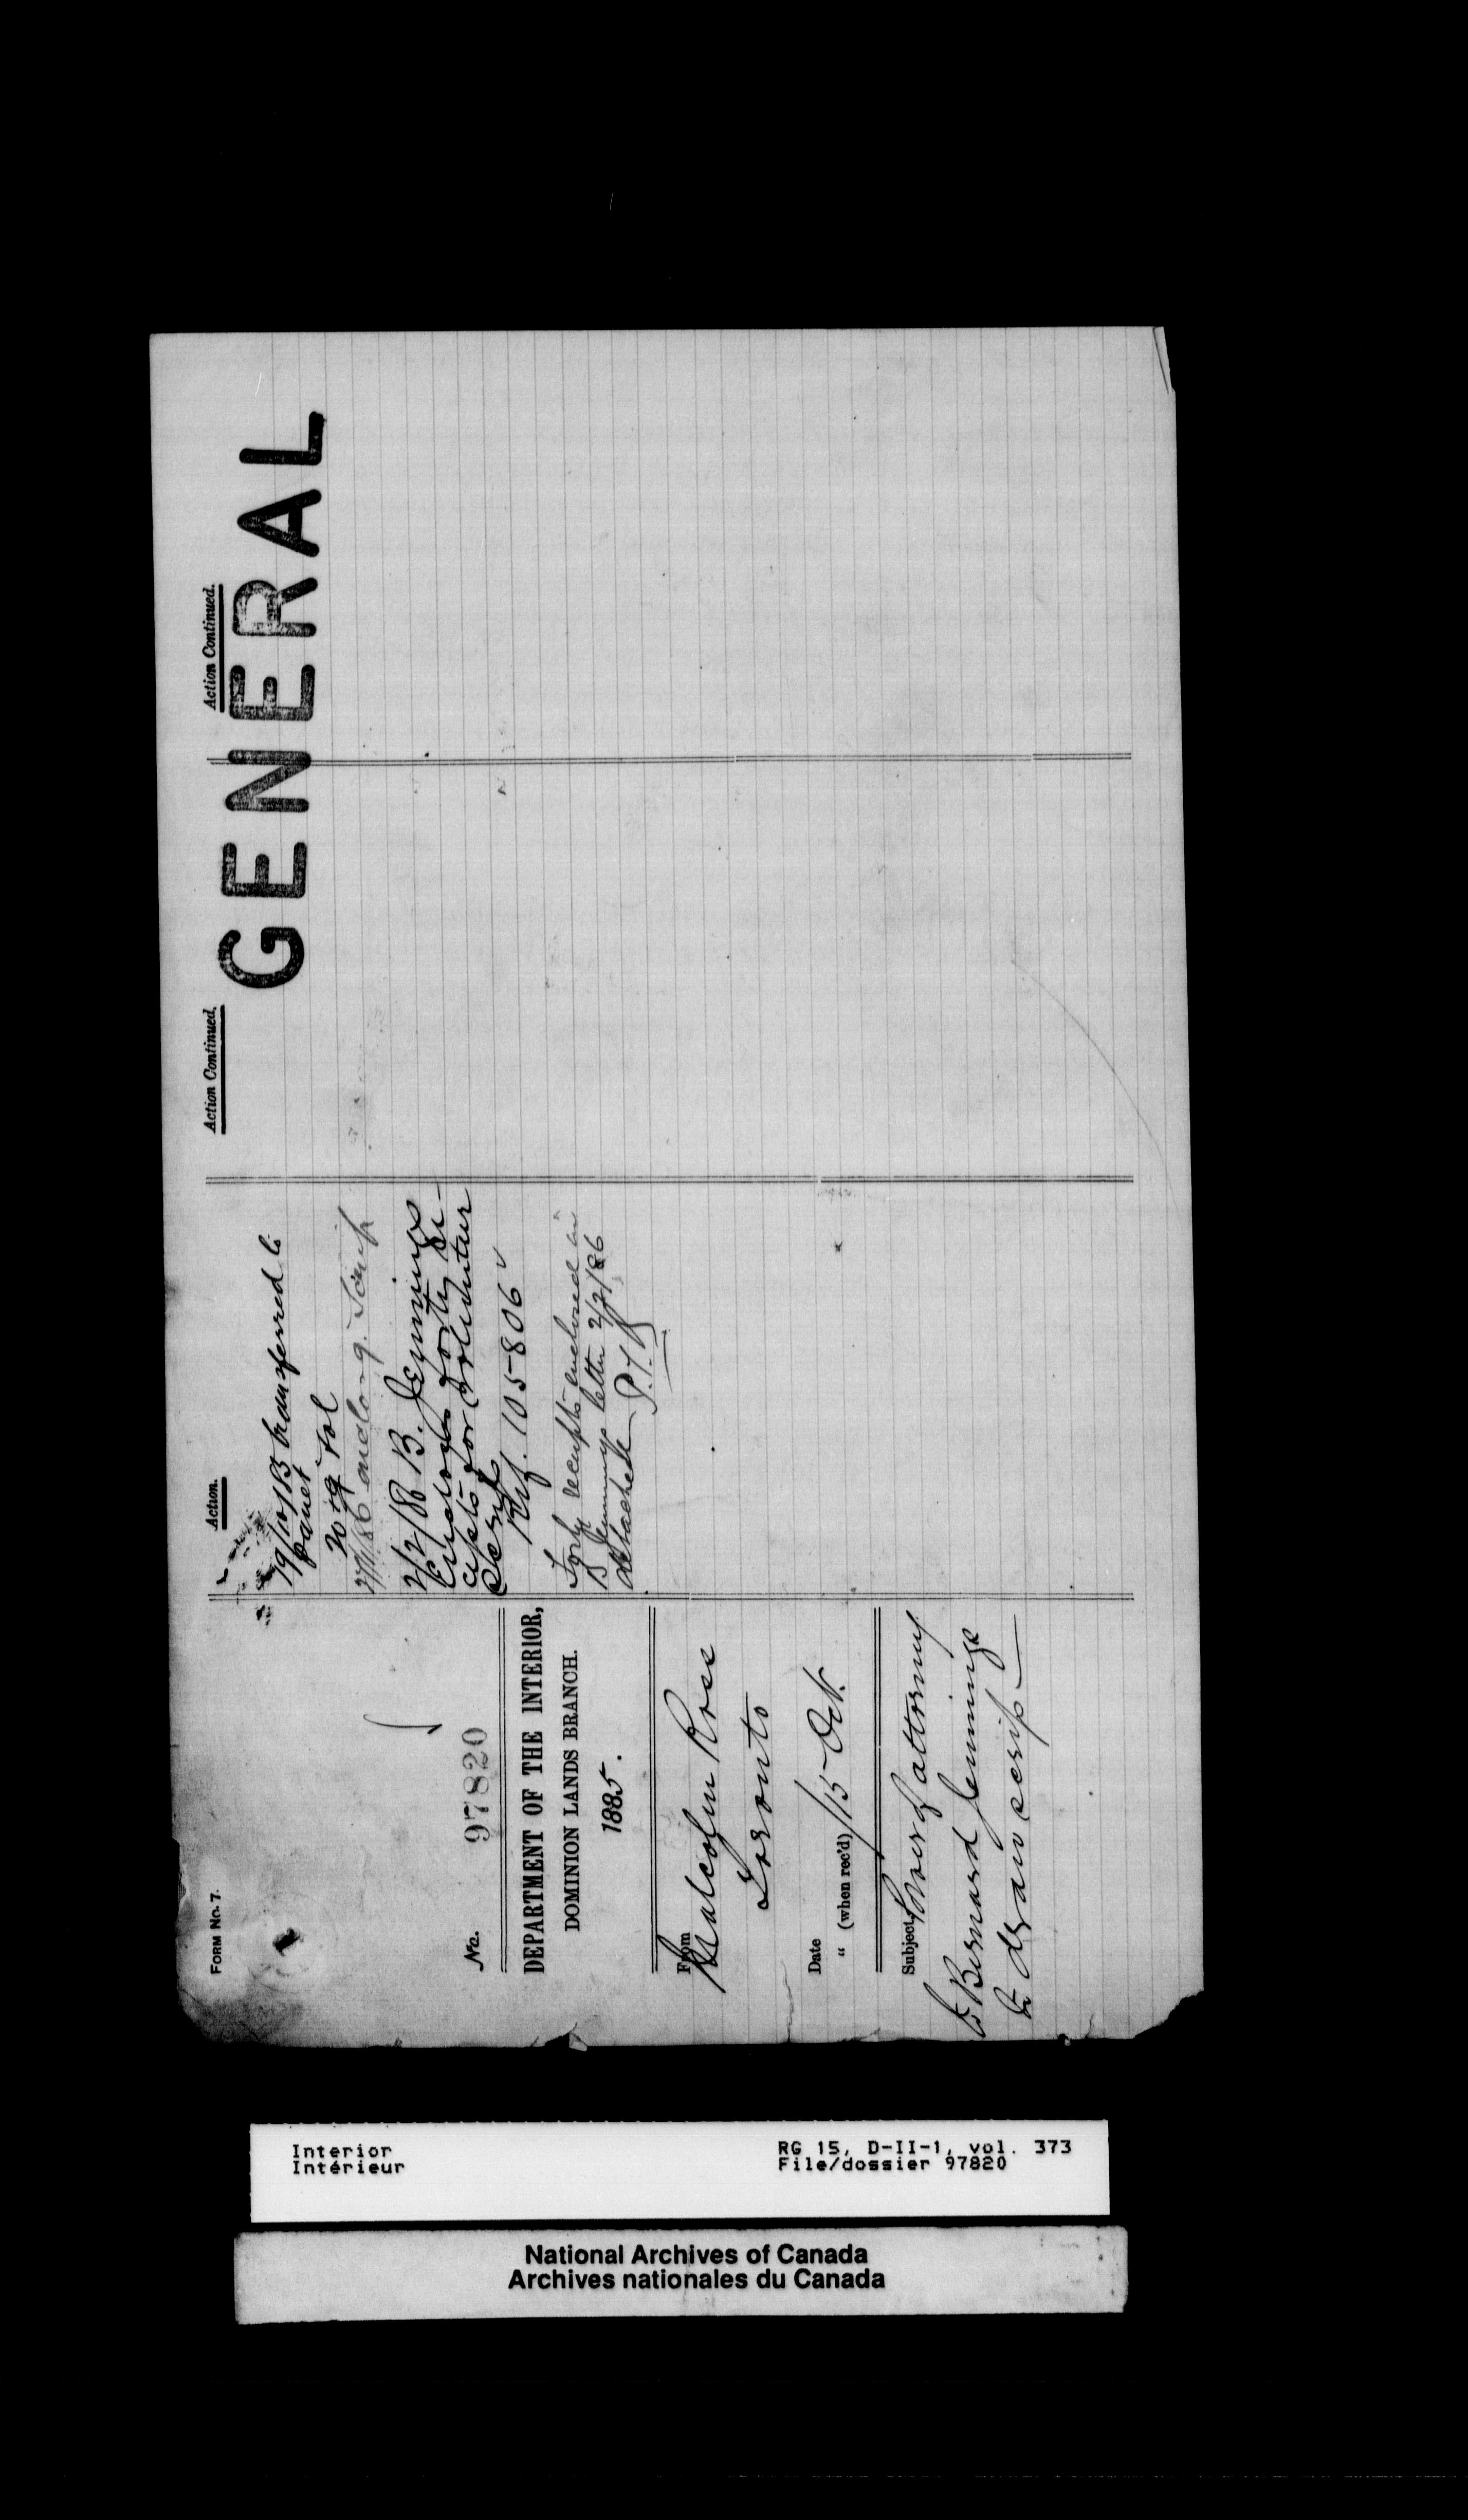 FORM No. 7.
No. 97820
DEPARTMENT OF THE INTERIOR,
DOMINION LANDS BRANCH.
1885.
From
Malcolm Ross
Toronto
Date
" (when rec'd) 15 Oct.
Subject, Power of attorney
to Bernard Jennings
to draw scrip—
Action.
19/10/85 transferred to
20 Fol
Scrip
2/2/86 B. Jennings
Encloses forty re-
cipts for volunteer
Scrips
Ref. 105806 ✓
Forty receipts enclosed in
B Jennings letter 2/2/86
detached
Action Continued.
Action Continued.
GENERAL
Interior
Intérieur
RG 15, D-II-1, vol. 373
File/dossier 97820
National Archives of Canada
Archives nationales du Canada